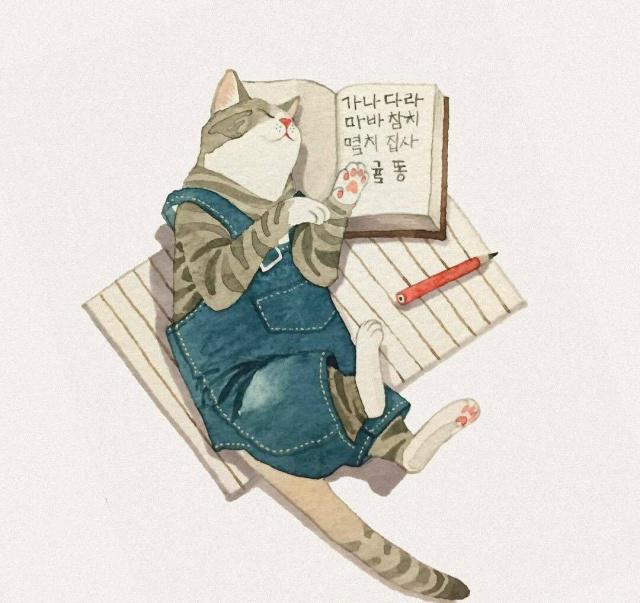 가나다라
마바참치
멸치 집사
귤 똥